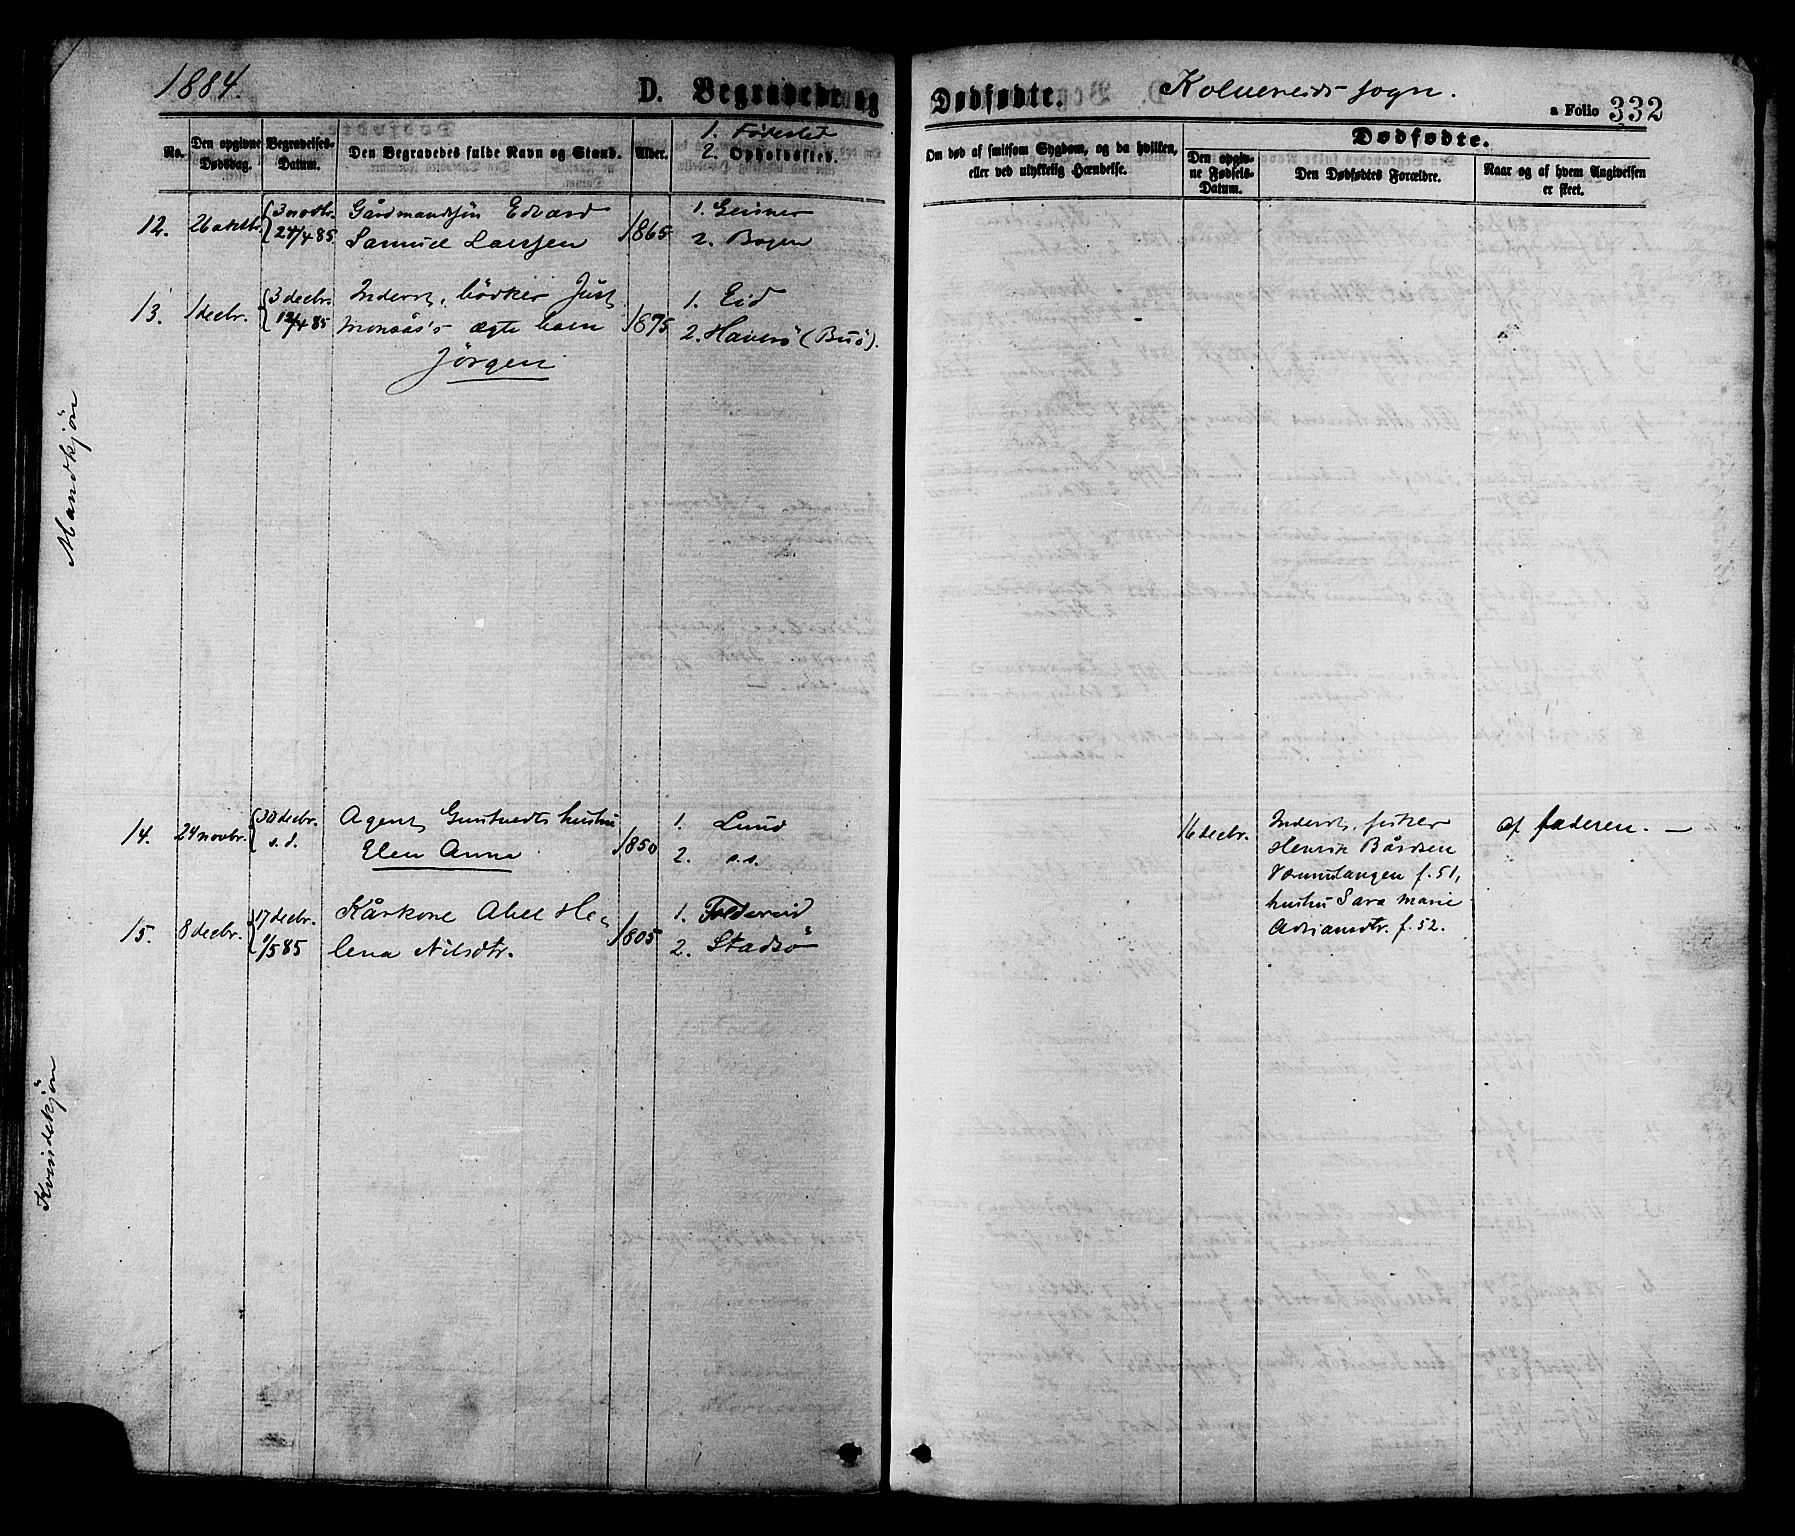 1884.
D. Begravede og Dødfødte.
Kolvereids sogn.
a Folio 332
No.
Den opgivne Dødsdag.
Begravelses-Datum.
Den Begravedes fulde Navn og Stand.
Alder.
1. Fødested
2. Opholdssted.
Om død af smitsom Sygdom, og da hvilken,
eller ved ulykkelig Hændelse.
Dødfødte.
Den opgiv-
ne Fødsels-
Datum.
Den Dødfødtes Forældre.
Naar og af hvem Angivelsen
er skeet.
Mandkjøn
12. 26 oktbr. {3 novbr. Gårdmandssøn Edvard 1865 1.
24/4 85 Samuel Larssen 2. Bogen
13. 1 decbr. {3 decbr. Inderst, bødker Just 1875 1. Eid
12/4 85 Monsås's ægte barn 2. Haverø (Buø).
Jørgen
Kvindekjøn
14. 24 novbr. {30 decbr. Agent Gustvedts hustru 1850 1. Lund
s.d. Elen Anna 2. s.s.
15. 8 decbr. {17 decbr. Kårkone Abel He- 1805 1. Foldereid
1/5 85 lena Nilsdtr. 2. Stadsø
16 decbr. Inderst, fisker af faderen. —
Henrik Bårdsen
f. 51,
hustru Sara Marie
Adriansdtr. f. 52.